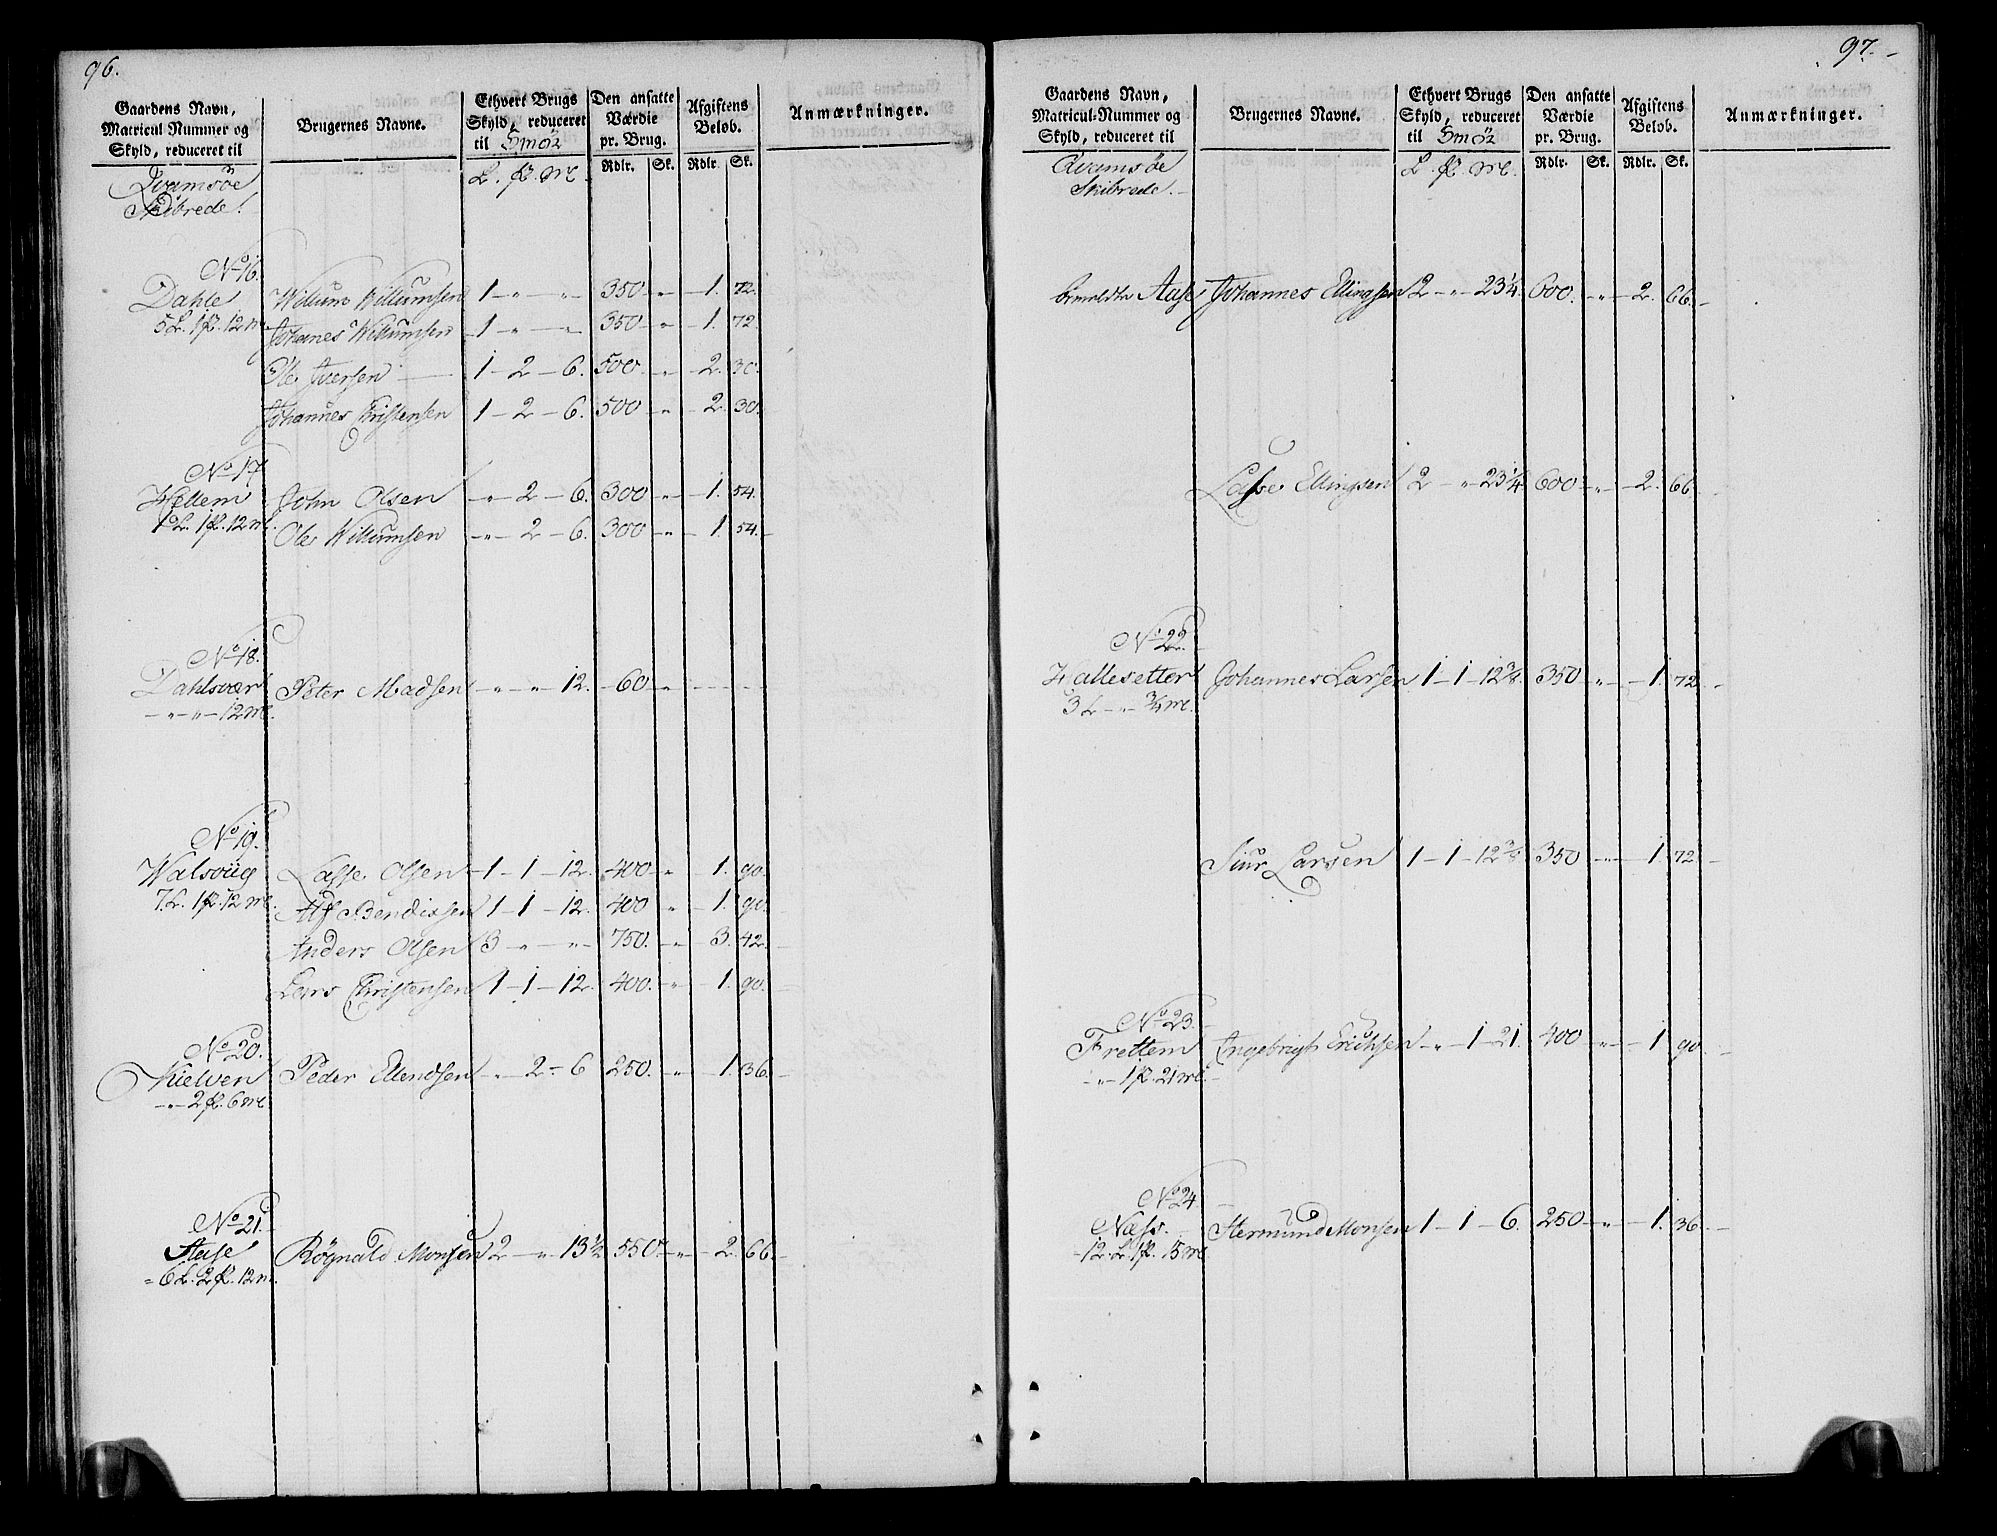 96.
Gaardens Navn, Matricul Nummer og Skyld, reduceret til
Brugernes Navne.
Ethvert Brugs Skyld, reduceret til Smör
Den ansatte Værdie pr. Brug.
Afgiftens Beløb.
Anmærkninger.
L. p. Mk. Rdlr. Sk. Rdlr. Sk.
Qvamsöe
Skibrede.
No 16.
Dahle Willum Willumsen 1 - " - " - 350 - " - 1. 72.
5 L. 1 p. 12 m. Johanes Willumsen 1 - " - " - 350 - " - 1. 72.
Ole Iversen 1 - 2 - 6. 500 - " - 2. 30.
Johannes Christensen 1 - 2 - 6. 500 - " - 2. 30.
No 17
Hellem John Olsen - " - 2 - 6. 300 - " - 1. 54.
1 L. 1 p. 12 m. Ole Willumsen - " - 2 - 6. 300 - " - 1. 54. -
No 18.
Dahlsvær Peter Madsen - " - " 12. - 60 - " - - - -
- " - " - 12 m.
No 19.
Walsvüg Lasse Olsen - 1 - 1 - 12. 400 - " - 1. 90.
7. L. 1 p. 12 m. Alf Bendixsen 1 - 1 - 12. 400 " - 1. 90.
Anders Olsen 3 - " - " - 750. - " - 3. 42. -
Lars Christensen 1 - 1 - 12. 400. - " - 1. 90.
No 20.
Kielven Peder Ellendsen - " - 2 - 6 250. - " - 1. 36. -
- " - 2 p. 6 m.
No 21.
Aase Rögnald Monsen 2 - " 13 1/2 550 - " - 2. 66. -
6 L. 2 p. 12 m.
97. -
Gaardens Navn, Matricul-Nummer og Skyld, reduceret til
Brugernes Navne.
Ethvert Brugs Skyld, reduceret til Smör
Den ansatte Værdie pr. Brug.
Afgiftens Beløb.
Anmærkninger.
L. p. Mk. Rdlr. Sk. Rdlr. Sk.
Qvamsöe
Skibrede.
Aase Johannes Ellingsen 2 - " - 23 1/4. 600. - " - 2. 66. -
Lasse Ellingsen 2 - " - 23 1/4 600 - " - 2. 66.
No 22.
Hallesetter Johannes Larsen 1 - 1 - 12 3/8. 350 " - 1. 72. -
3 L - " - 3/4 m.
Siur Larsen 1 - 1 - 12 3/8. 350 - " - 1. 72 -
No 23.
Frettem Ingebrigt Erichsen - " - 1 - 21. 400 - " - 1 90. -
- " - 1 p. 21 m. -
No 24
Næss. Hermund Monsen 1 - 1 - 6. 250 - " - 1. 36. -
- 12. L. 1 p. 15 m.